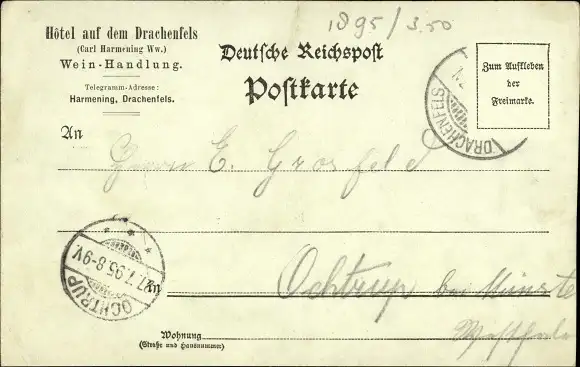 Hôtel auf dem Drachenfels
(Carl Harmening Ww.)
Wein-Handlung.
Telegramm-Adresse:
Harmening, Drachenfels.
1895/3.50
Deutsche Reichspost
Postkarte
Zum Aufkleben
der
Freimarke.
DRACHENFELS
An
Herrn E. Grosfeld
OCHTRUP
27.7.95.8-9V.
Ochtrup bei Münster
Westfalen
Wohnung
(Straße und Hausnummer)